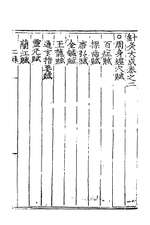 針灸大成卷之二
周身經穴賦
百症賦
標幽賦
席弘賦
金鍼賦
玉龍賦
通玄指要賦
靈光賦
蘭江賦